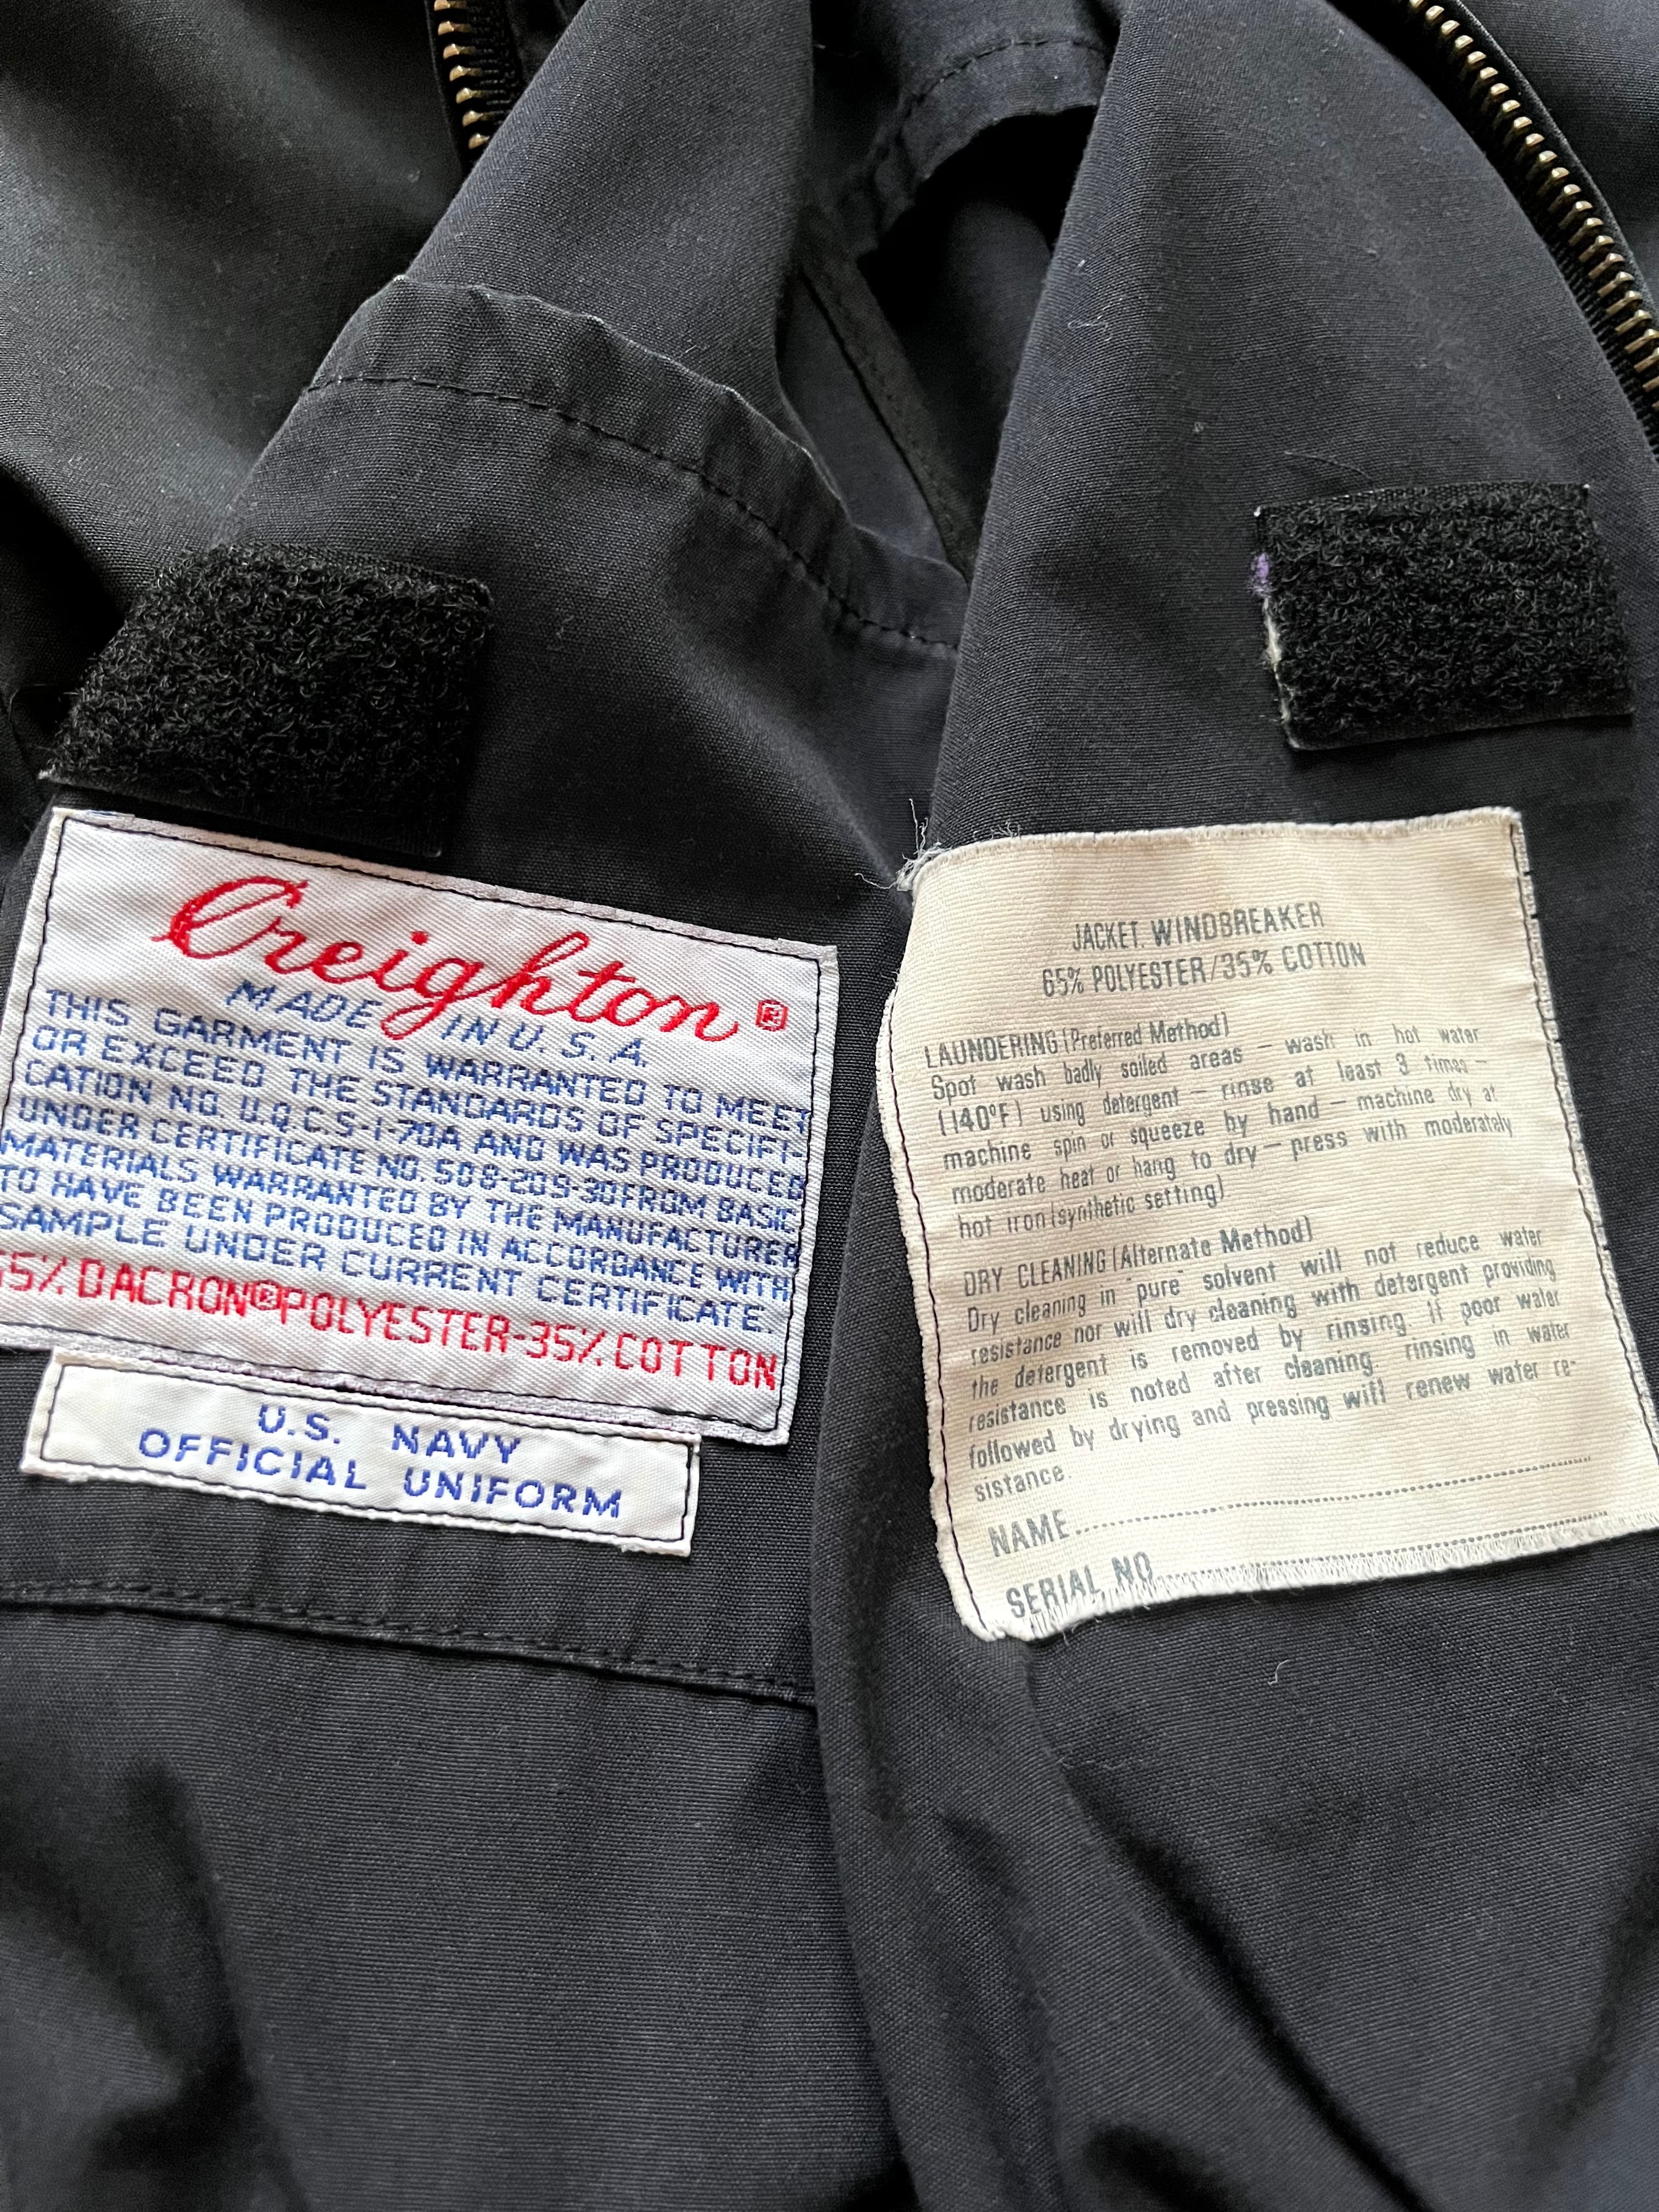 Creighton®
MADE IN U.S.A.
THIS GARMENT IS WARRANTED TO MEET
OR EXCEED THE STANDARDS OF SPECIFI-
CATION NO. U.Q.C.S-1-70A AND WAS PRODUCED
UNDER CERTIFICATE NO. 508-209-30 FROM BASIC
MATERIALS WARRANTED BY THE MANUFACTURER
TO HAVE BEEN PRODUCED IN ACCORDANCE WITH
SAMPLE UNDER CURRENT CERTIFICATE.
65% DACRON® POLYESTER-35% COTTON
U.S. NAVY
OFFICIAL UNIFORM
JACKET, WINDBREAKER
65% POLYESTER/35% COTTON
LAUNDERING (Preferred Method)
Spot wash badly soiled areas – wash in hot water
(140°F) using detergent – rinse at least 3 times –
machine spin or squeeze by hand – machine dry at
moderate heat or hang to dry – press with moderately
hot iron (synthetic setting)
DRY CLEANING (Alternate Method)
Dry cleaning in "pure" solvent will not reduce water
resistance nor will dry cleaning with detergent providing
the detergent is removed by rinsing. If poor water
resistance is noted after cleaning, rinsing in water
followed by drying and pressing will renew water re-
sistance.
NAME
SERIAL NO